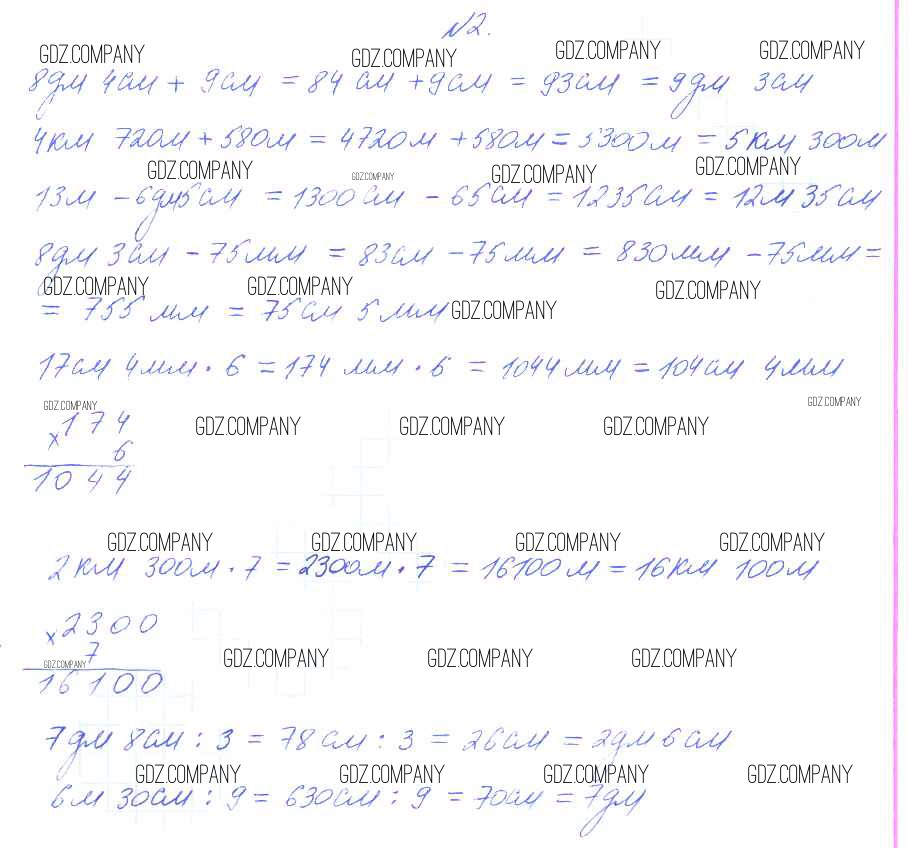 №2.
GDZ.COMPANY GDZ.COMPANY GDZ.COMPANY GDZ.COMPANY
8дм 4см + 9см = 84 см + 9см = 93см = 9дм 3см
4км 720м + 580м = 4720м + 580м = 5300м = 5км 300м
GDZ.COMPANY GDZ.COMPANY GDZ.COMPANY GDZ.COMPANY
13м - 6дм5см = 1300см - 65см = 1235см = 12м 35см
8дм 3см - 75мм = 83см - 75мм = 830мм - 75мм =
GDZ.COMPANY GDZ.COMPANY GDZ.COMPANY
= 755 мм = 75см 5мм GDZ.COMPANY
17см 4мм · 6 = 174 мм · 6 = 1044мм = 104см 4мм
GDZ.COMPANY GDZ.COMPANY
×174 GDZ.COMPANY GDZ.COMPANY GDZ.COMPANY
6
1044
GDZ.COMPANY GDZ.COMPANY GDZ.COMPANY GDZ.COMPANY
2км 300м · 7 = 2300м · 7 = 16100м = 16км 100м
×2300
7 GDZ.COMPANY GDZ.COMPANY GDZ.COMPANY
GDZ.COMPANY
16100
7дм 8см : 3 = 78см : 3 = 26см = 2дм 6см
GDZ.COMPANY GDZ.COMPANY GDZ.COMPANY GDZ.COMPANY
6м 30см : 9 = 630см : 9 = 70см = 7дм